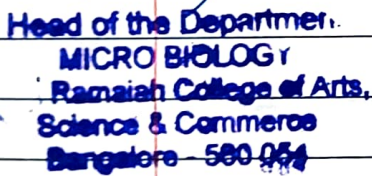 Head of the Departmen
MICRO BIOLOGY
Ramaiah College of Arts,
Science & Commerce
Bangalore - 560 054